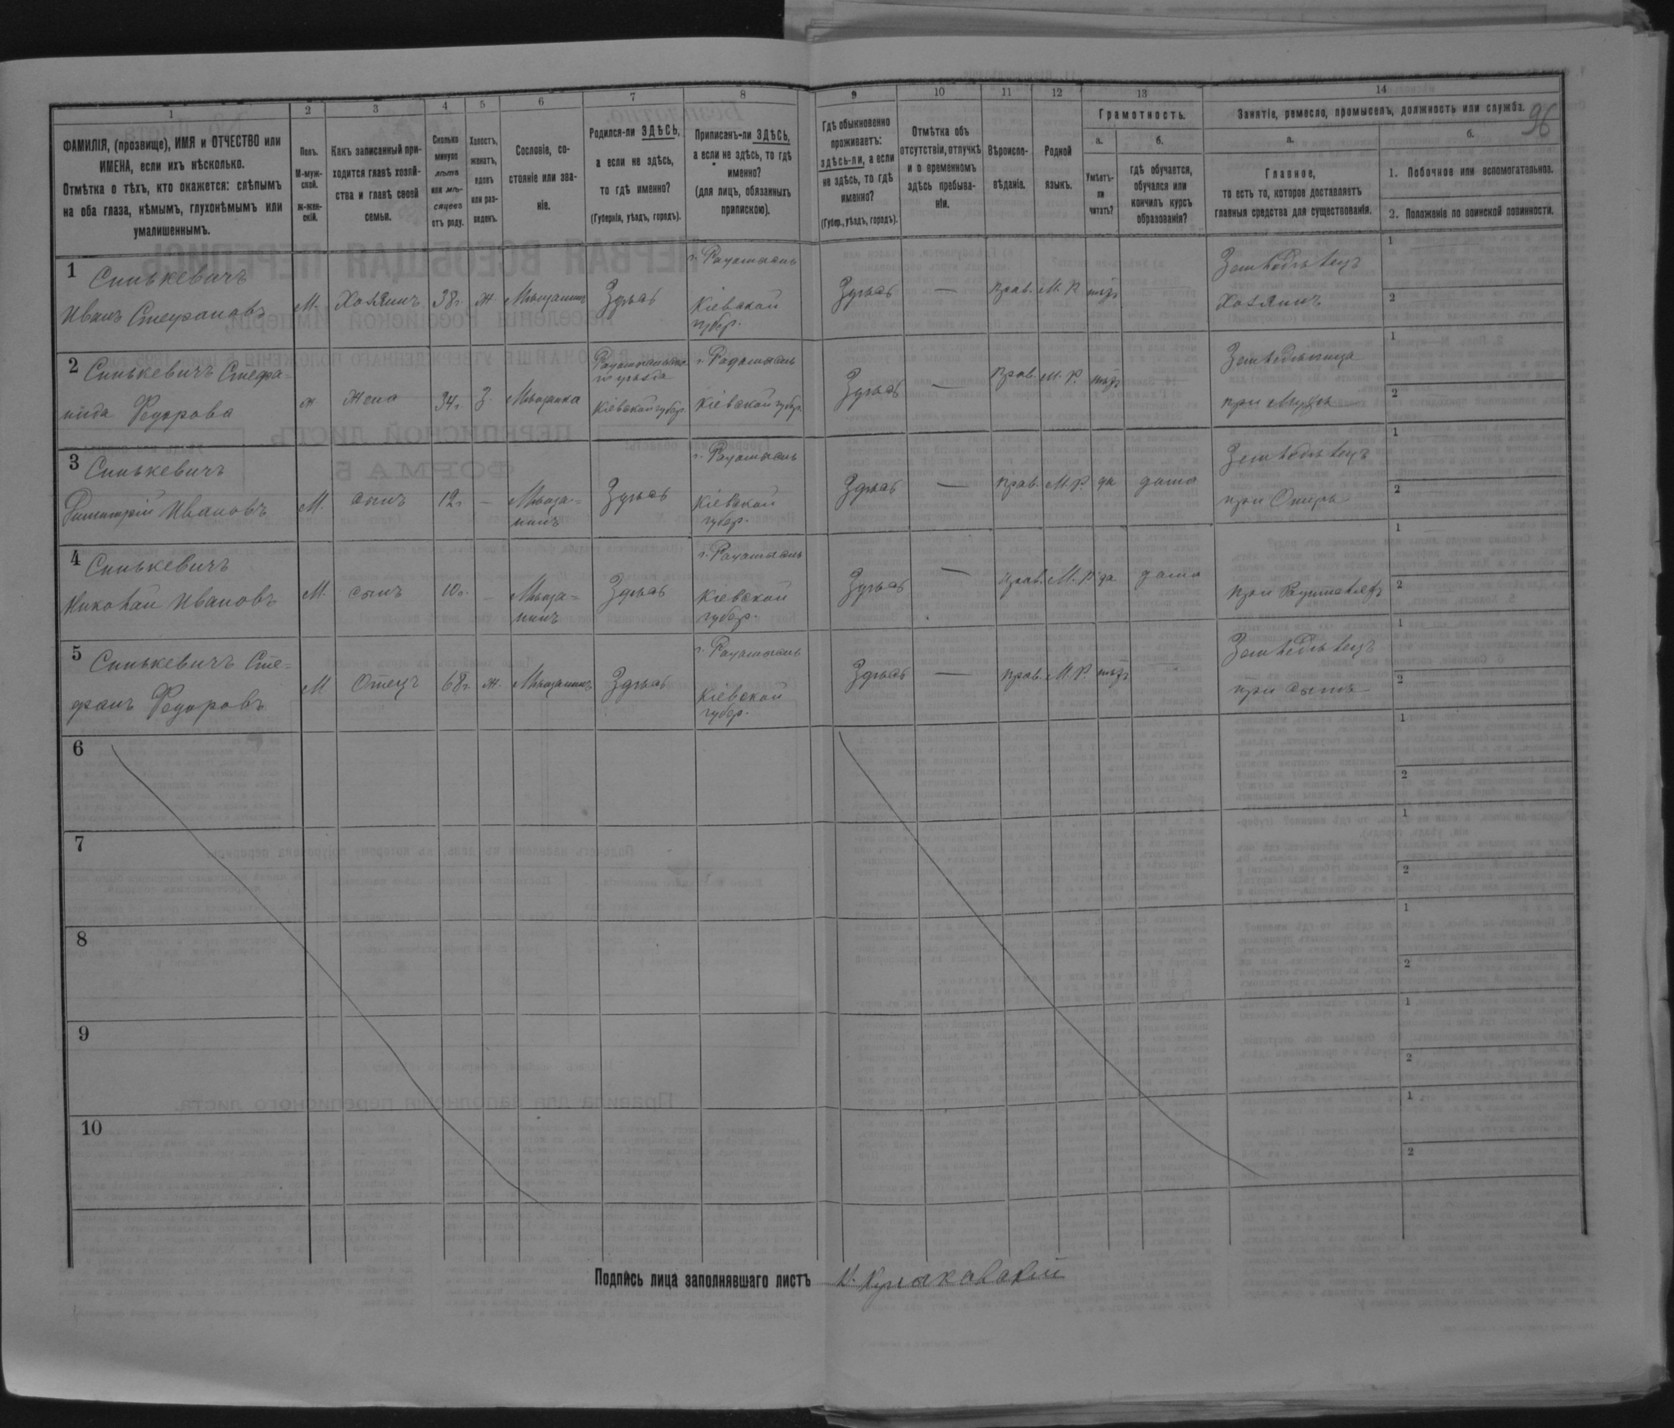 96
1 2 3 4 5 6 7 8 9 10 11 12 13 14
ФАМИЛІЯ, (прозвище), ИМЯ и ОТЧЕСТВО или
ИМЕНА, если ихъ нѣсколько.
Отмѣтка о тѣхъ, кто окажется: слѣпымъ
на оба глаза, нѣмымъ, глухонѣмымъ или
умалишеннымъ.
Полъ.
М-муж-
ской.
Ж-жен-
скій.
Какъ записанный при-
ходится главѣ хозяй-
ства и главѣ своей
семьи.
Сколько
минуло
лѣтъ
или мѣ-
сяцевъ
отъ роду.
Холостъ,
женатъ,
вдовъ
или раз-
веденъ.
Сословіе, со-
стояніе или зва-
ніе.
Родился-ли ЗДѢСЬ,
а если не здѣсь,
то гдѣ именно?
(Губернія, уѣздъ, городъ).
Приписанъ-ли ЗДѢСЬ,
а если не здѣсь, то гдѣ
именно?
(для лицъ, обязанныхъ
припискою).
Гдѣ обыкновенно
проживаетъ:
здѣсь-ли, а если
не здѣсь, то гдѣ
именно?
(Губер., уѣздъ, городъ).
Отмѣтка объ
отсутствіи, отлучкѣ
и о временномъ
здѣсь пребыва-
ніи.
Вѣроиспо-
вѣданіе.
Родной
языкъ.
Грамотность.
а.
Умѣетъ-
ли
читать?
б.
гдѣ обучается,
обучался или
кончилъ курсъ
образованія?
Занятіе, ремесло, промыселъ, должность или служба.
а.
Главное,
то есть то, которое доставляетъ
главныя средства для существованія.
б.
1. Побочное или вспомогательное.
2. Положеніе по воинской повинности.
1 Синькевичъ
Иванъ Стефановъ М. Хозяинъ 38 г. ж. Мѣщанинъ Здѣсь г. Радомысль
Кіевской
губер. Здѣсь — Прав. М. Р. нѣтъ —
Земледѣлецъ
Хозяинъ
1
2
2 Синькевичъ Стефа-
нида Федорова ж. жена 34 г. З. Мѣщанка
Кіевской губер. г. Радомысль
Кіевской губер. Здѣсь — Прав. М. Р. нѣтъ
Земледѣлица
при мужѣ
1
2
3 Синькевичъ
Димитрій Ивановъ М. сынъ 12 г. — Мѣща-
нинъ Здѣсь г. Радомысль
Кіевской
губер. Здѣсь — Прав. М. Р. да дома
Земледѣлецъ
при Отцѣ
1
2
4 Синькевичъ
Николай Ивановъ М. сынъ 10 г. — Мѣща-
нинъ Здѣсь г. Радомысль
Кіевской
губер. Здѣсь — Прав. М. Р. да дома
при
1
2
5 Синькевичъ Сте-
фанъ Федоровъ М Отецъ 68 г. ж. Мѣщанинъ Здѣсь г. Радомысль
Кіевской
губер. Здѣсь — Прав. М. Р. нѣтъ —
Земледѣлецъ
при сынѣ
1
2
6
1
2
7
1
2
8
1
2
9
1
2
10
1
2
Подпись лица заполнявшаго листъ